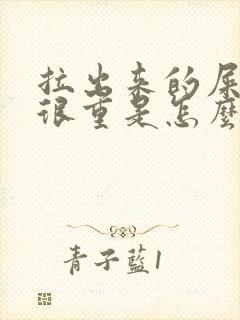 拉出来的屎
很重是怎麼
青子藍1